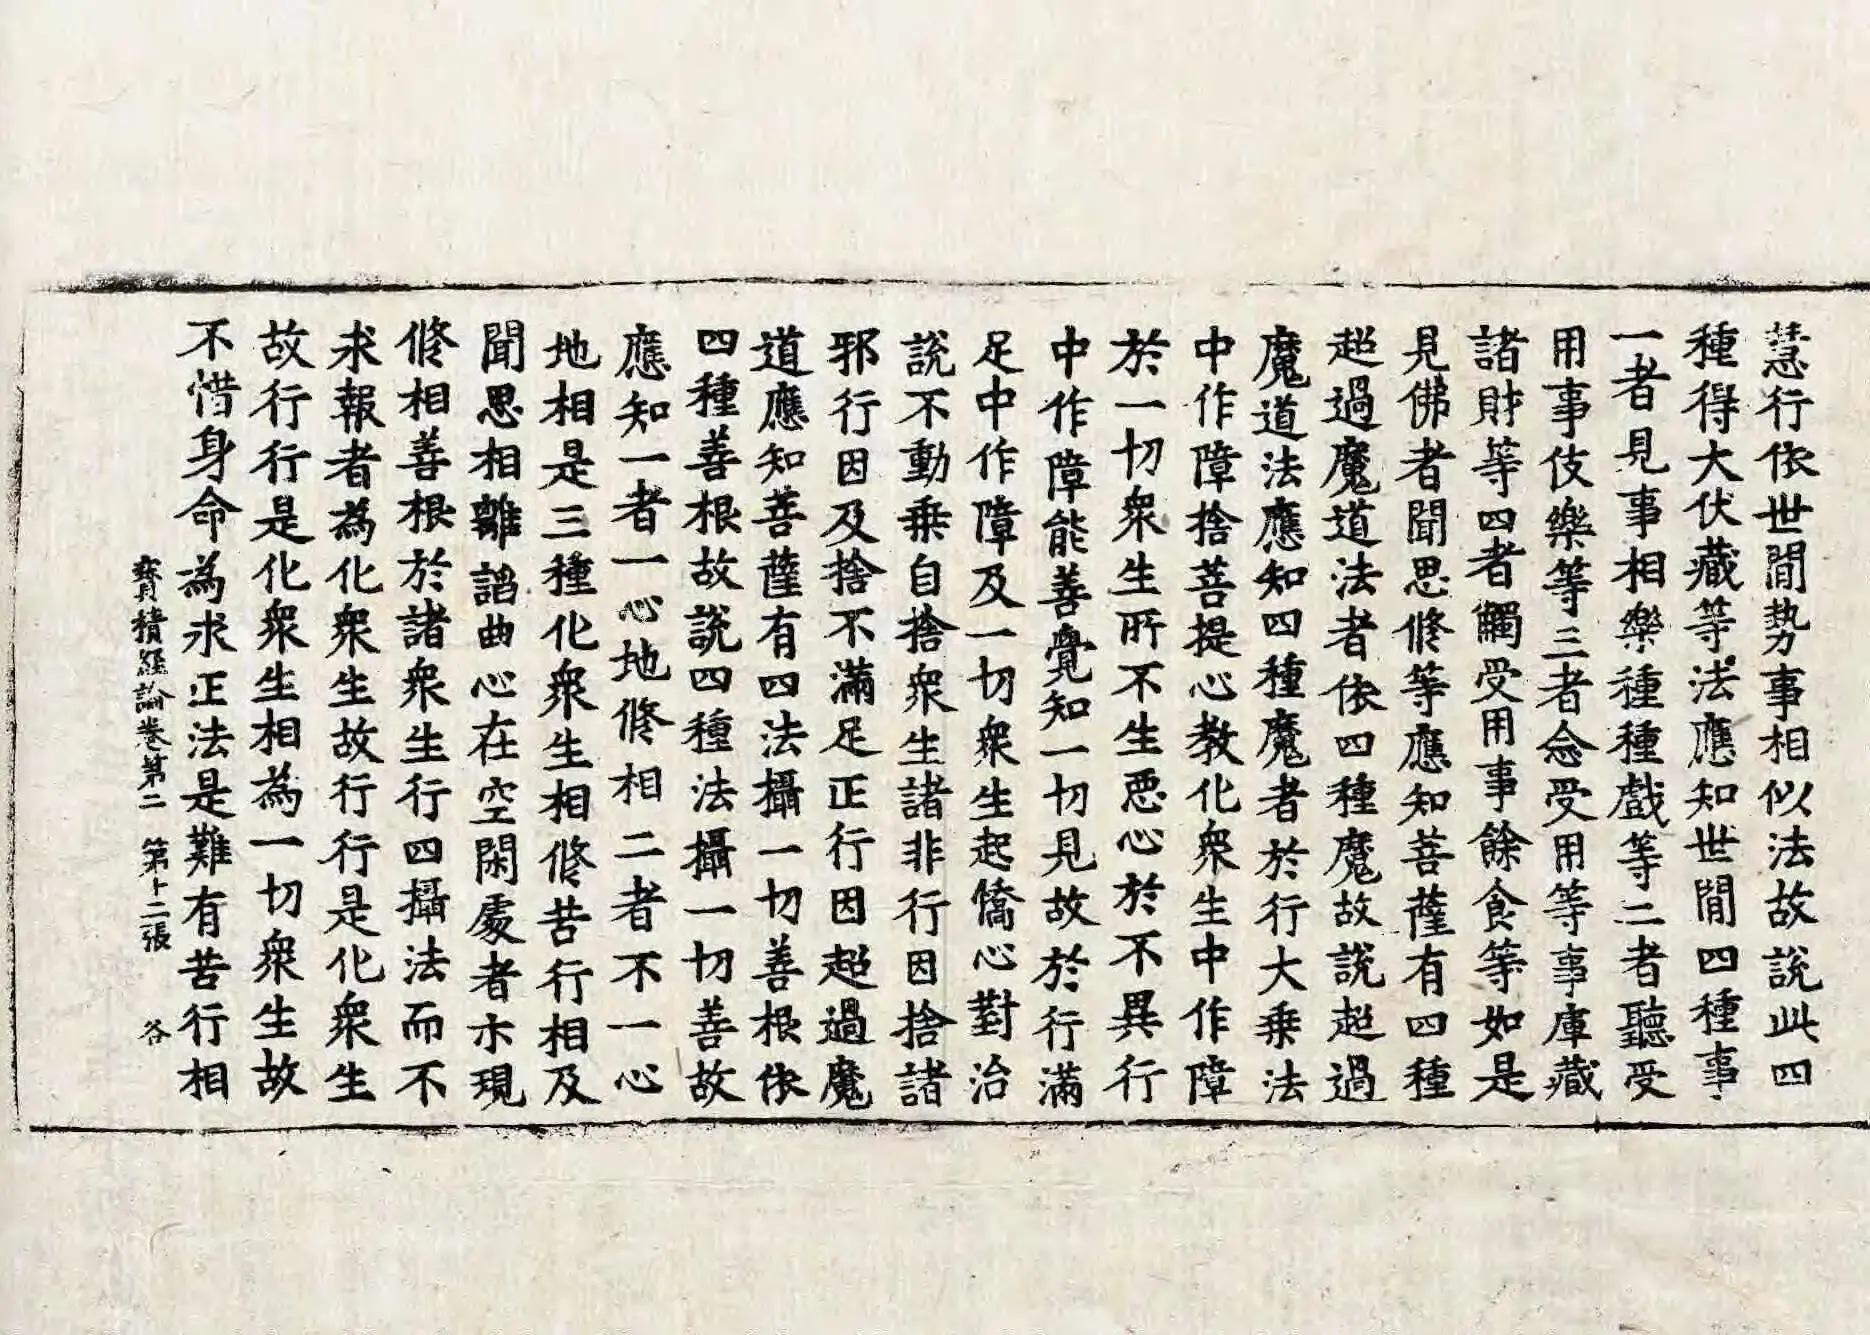 慧行依世間势事相似法故說此四
種得大伏藏等法應知世間四種事
一者見事相樂種種戲等二者聽受
用事伎樂等三者念受用等事庫藏
諸財等四者觸受用事餘食等如是
見佛者聞思修等應知菩薩有四種
超過魔道法者依四種魔故說超過
魔道法應知四種魔者於行大乗法
中作障捨菩提心教化衆生中作障
於一切衆生所不生惡心於不異行
中作障能善覺知一切見故於行滿
足中作障及一切衆生起憍心對治
說不動乗自捨衆生諸非行因捨諸
邪行因及捨不滿足正行因超過魔
道應知菩薩有四法攝一切善根依
四種善根故說四種法攝一切善故
應知一者一心地修相二者不一心
地相是三種化衆生相修苦行相及
聞思相離謟曲心在空閑處者示現
修相善根於諸衆生行四攝法而不
求報者為化衆生故行行是化衆生
故行行是化衆生相為一切衆生故
不惜身命為求正法是難有苦行相
寶積経論卷第二　第十二張　谷